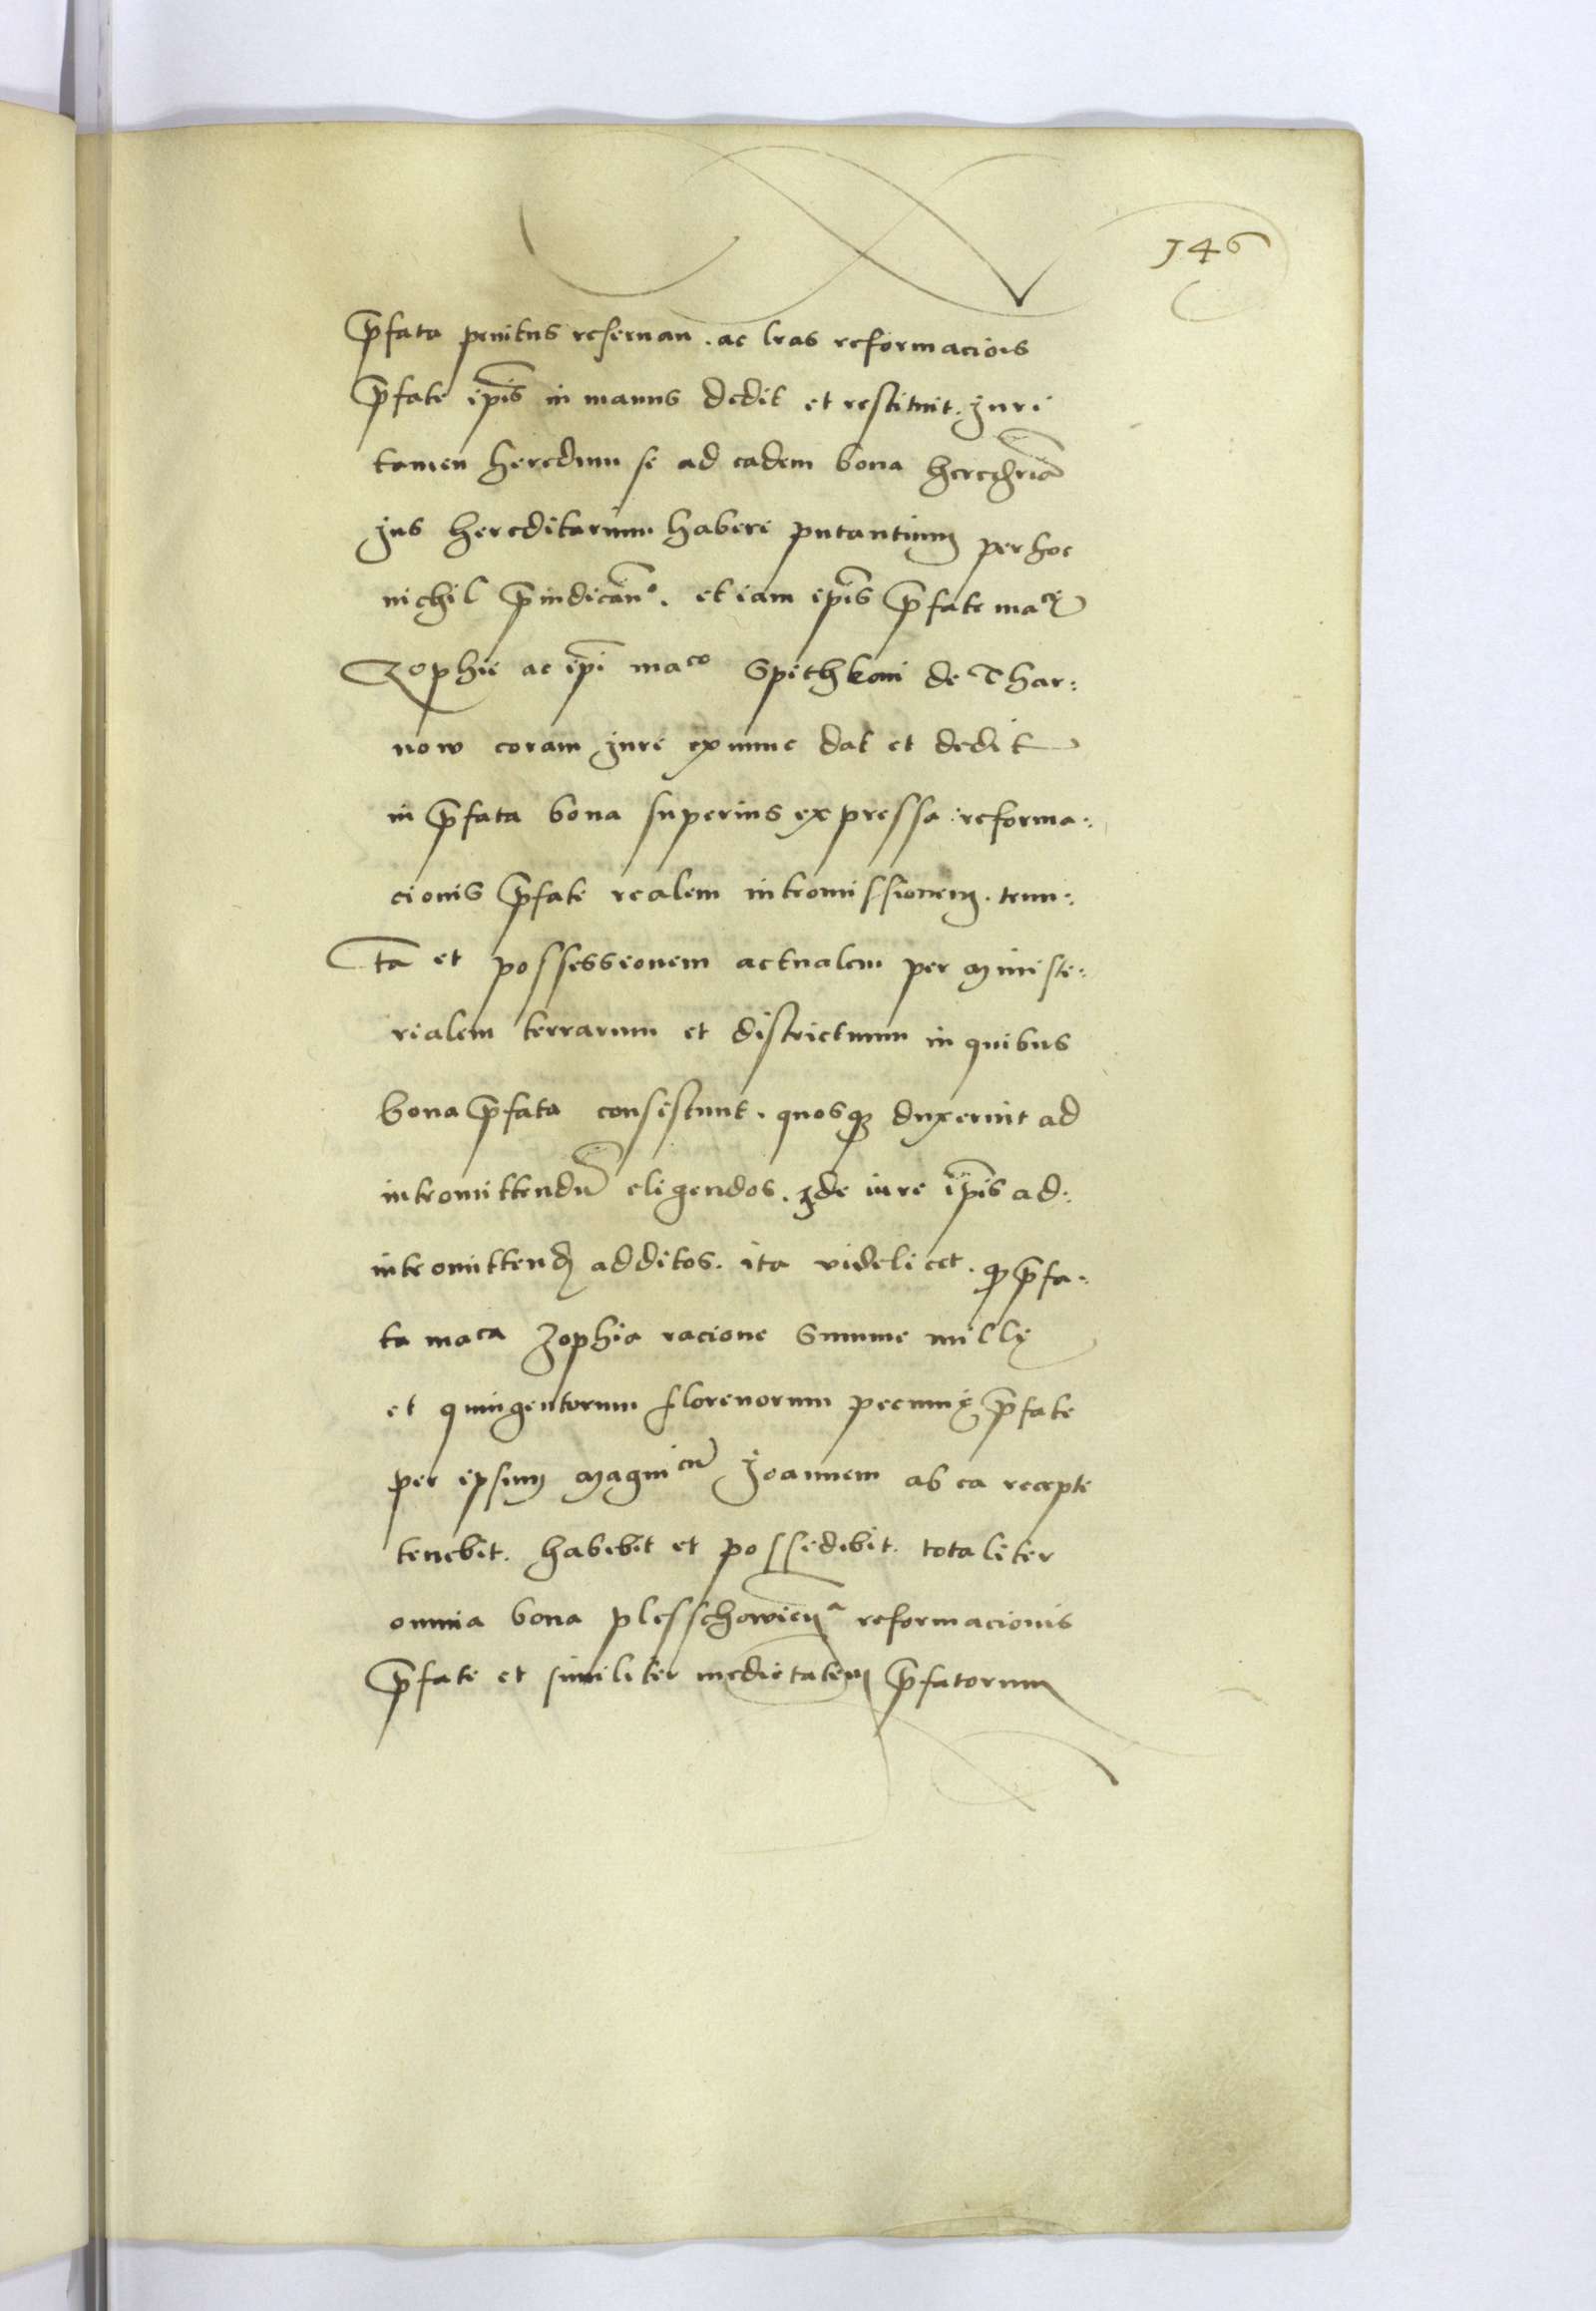 146
p̄fata penitus reseruan. ac lras reformaciois
p̄fate ip̄is in manus dedit et restituit. Juri
tamen heredum se ad eadem bona
Jus hereditarium habere putantium per hoc
nichil p̄iudican°. etiam ip̄is p̄fate maᶜᵉ̨
Zophie ac ip̄i maᶜᵒ Spithkoni de Thar:
now coram Jure ex nunc dat et dedit
in p̄fata bona superius expressa reforma:
cionis p̄fate realem intromissionem. tenu:
tā et possessionem actualem per ministe:
rialem terrarum et districtuum in quibus
bona p̄fata consistunt. quosqꝫ duxerint ad
intromittendū eligendos. de iure ip̄is ad:
intromittend̄ additos. ita videlicet. ꝙ p̄fa:
ta maᶜᵃ Zophia racione Summe millę
et quingentorum florenorum pecunię p̄fate
per ipsum Magniᶜū Joannem ab ea recepte
tenebit. habebit et possidebit. totaliter
omnia bona plesschowien̄ reformacionis
p̄fate et similiter medietatem p̄fatorum